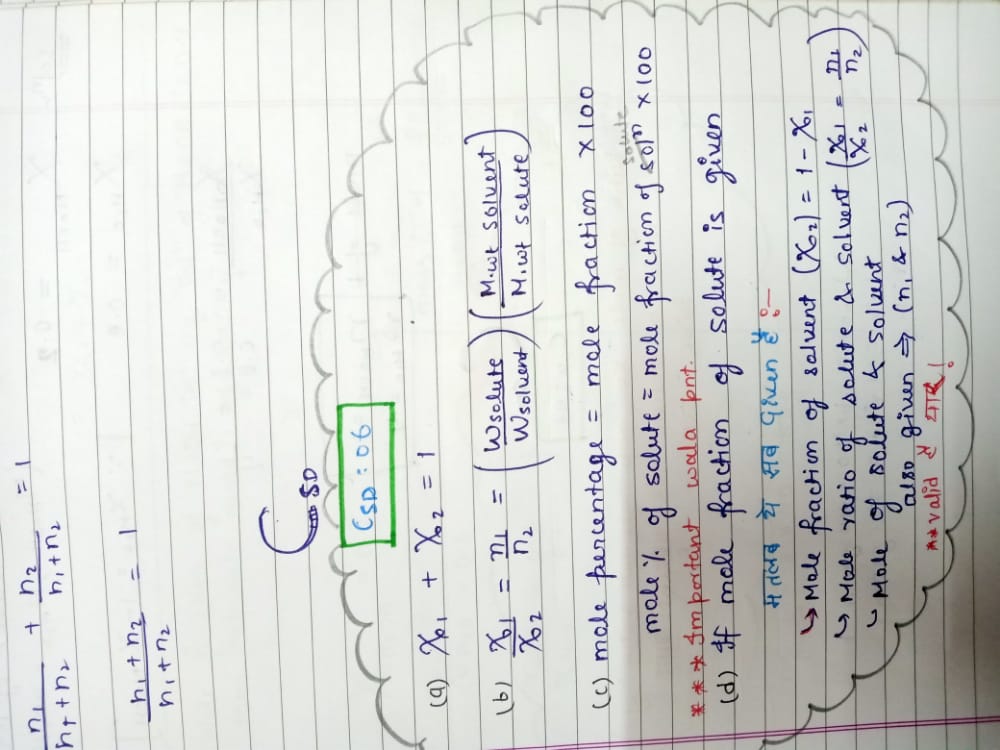 n₁/(n₁+n₂) + n₂/(n₁+n₂) = 1
(n₁+n₂)/(n₁+n₂) = 1
CSD
CSD : 06
(a) X₁ + X₂ = 1
(b) X₁/X₂ = n₁/n₂ = (W solute/W solvent) (M.wt solvent/M.wt solute)
(c) mole percentage = mole fraction × 100
solute
mole % of solute = mole fraction of solⁿ × 100
*** Important wala pnt.
(d) If mole fraction of solute is given
मतलब ये सब given है :-
↳ Mole fraction of solvent (X₂) = 1 - X₁
↳ Mole ratio of solute & solvent (X₁/X₂ = n₁/n₂)
↳ Mole of solute & solvent
also given ⇒ (n₁ & n₂)
** valid है यार !